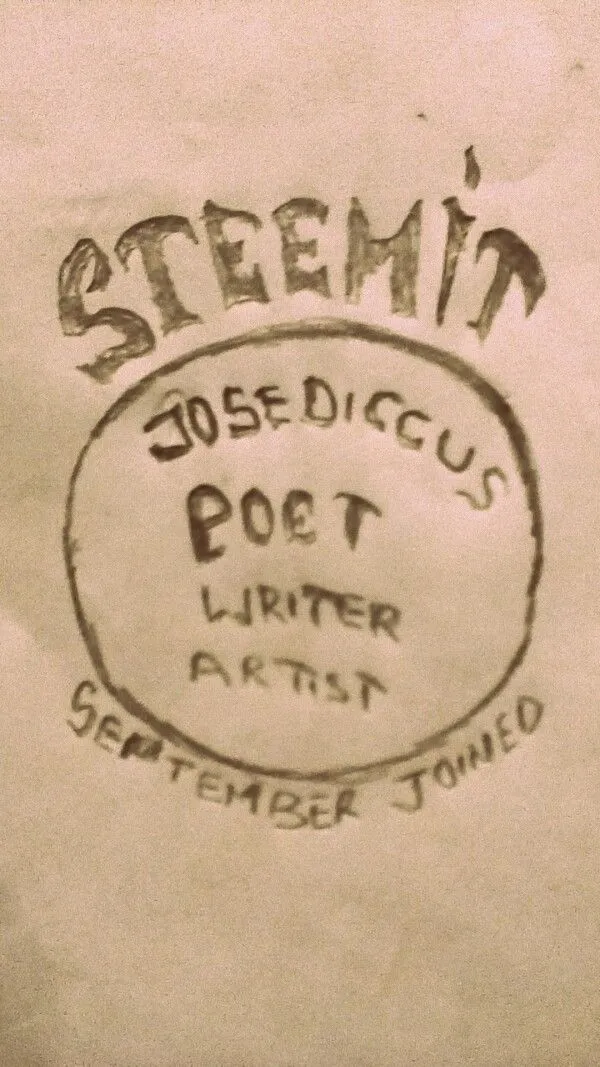 STEEMiT
JOSEDICCUS
POET
WRITER
ARTIST
SEPTEMBER JOINED